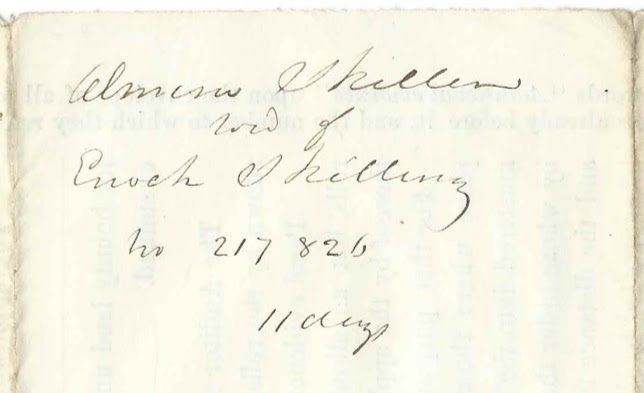 Almira Skillen
Wid of
Enoch Skilling
No 217 826
11 days